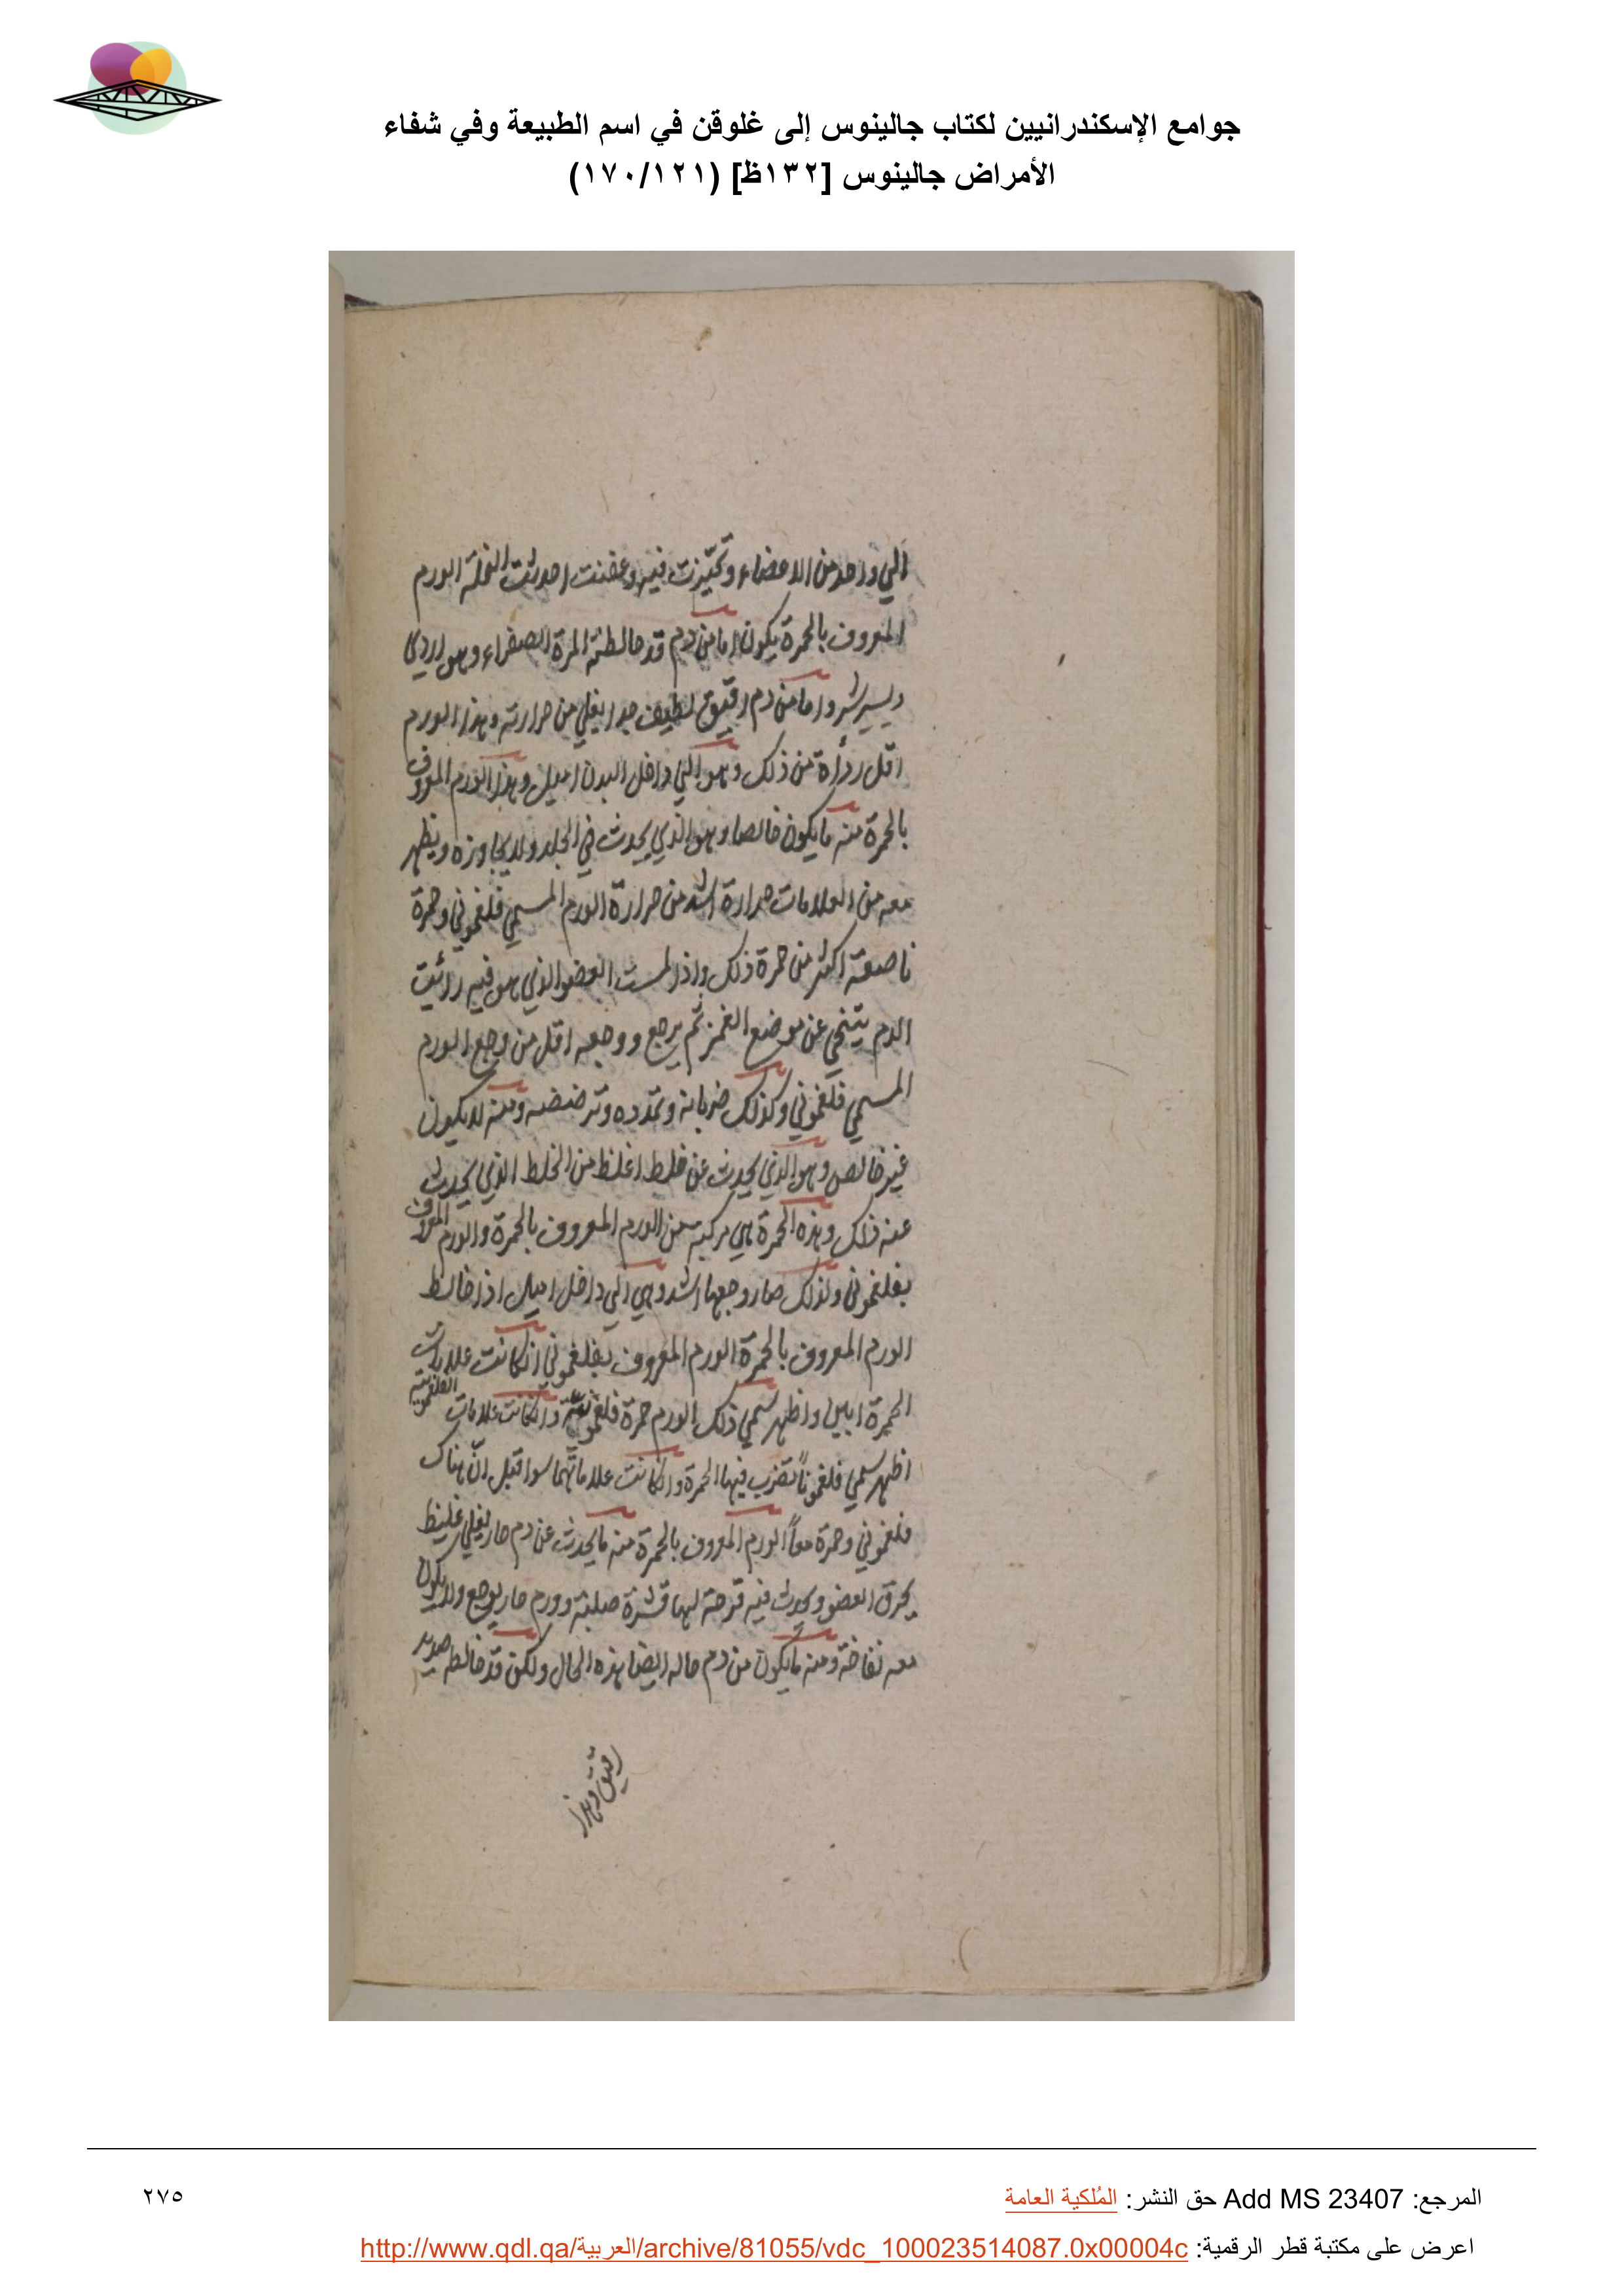 جوامع الإسكندرانيين لكتاب جالينوس إلى غلوقن في اسم الطبيعة وفي شفاء
الأمراض جالينوس [١٣٢ظ] (١٧٠/١٢١)
الي واحد من الاعضاء وتحيزت فيه وعفنت احدثت النملة الورم
المعروف بالحمرة يكون اما من دم قد خالطته المرة الصفراء وهو
واما من دم رقيق لطيف جدا يغلي من حرارته وهذا الورم
اقل رداءة من ذلك وهو الي داخل البدن اميل وهذا الورم المعروف
بالحمرة منه ما يكون خالصا وهو الذي يحدث في الجلد ولا يجاوزه ويظهر
معه من العلامات حرارة اشد من حرارة الورم المسمي فلغموني وحمرة
ناصعة اكثر من حمرة ذلك واذا لمست العضو الذي هو فيه رأيت
الدم يتنحي عن موضع الغمز ثم يرجع ووجعه اقل من وجع الورم
المسمي فلغموني وكذلك ضربانه وتمدده وترضضه ومنه لا يكون
غير خالص وهو الذي يحدث عن خلط اغلظ من الخلط الذي يحدث
عنه ذلك وهذه الحمرة هي مركبة من الورم المعروف بالحمرة والورم المعروف
بفلغموني ولذلك صار وجعها اشد وهي الي داخل اميل اذا خالط
الورم المعروف بالحمرة الورم المعروف بفلغموني ان كانت علامات
الحمرة ابين واظهر سمي ذلك الورم حمرة فلغمونية وان كانت علامات الفلغمونية
اظهر سمي فلغمونا تضرب فيها الحمرة وان كانت علاماتهما سوا قيل ان هناك
فلغموني وحمرة معاً الورم المعروف بالحمرة منه ما يحدث عن دم حار يغلي غليظ
يحرق العضو ويحدث فيه قرحة لها قشرة صلبة وورم حار يوجع ولا يكون
معه نفاخة ومنه ما يكون من دم حاله ايضا هذه الحال ولكن قد خالطه صديد
رقيق وهذا
المرجع: Add MS 23407 حق النشر: المُلكية العامة
٢٧٥
اعرض على مكتبة قطر الرقمية: http://www.qdl.qa/العربية/archive/81055/vdc_100023514087.0x00004c